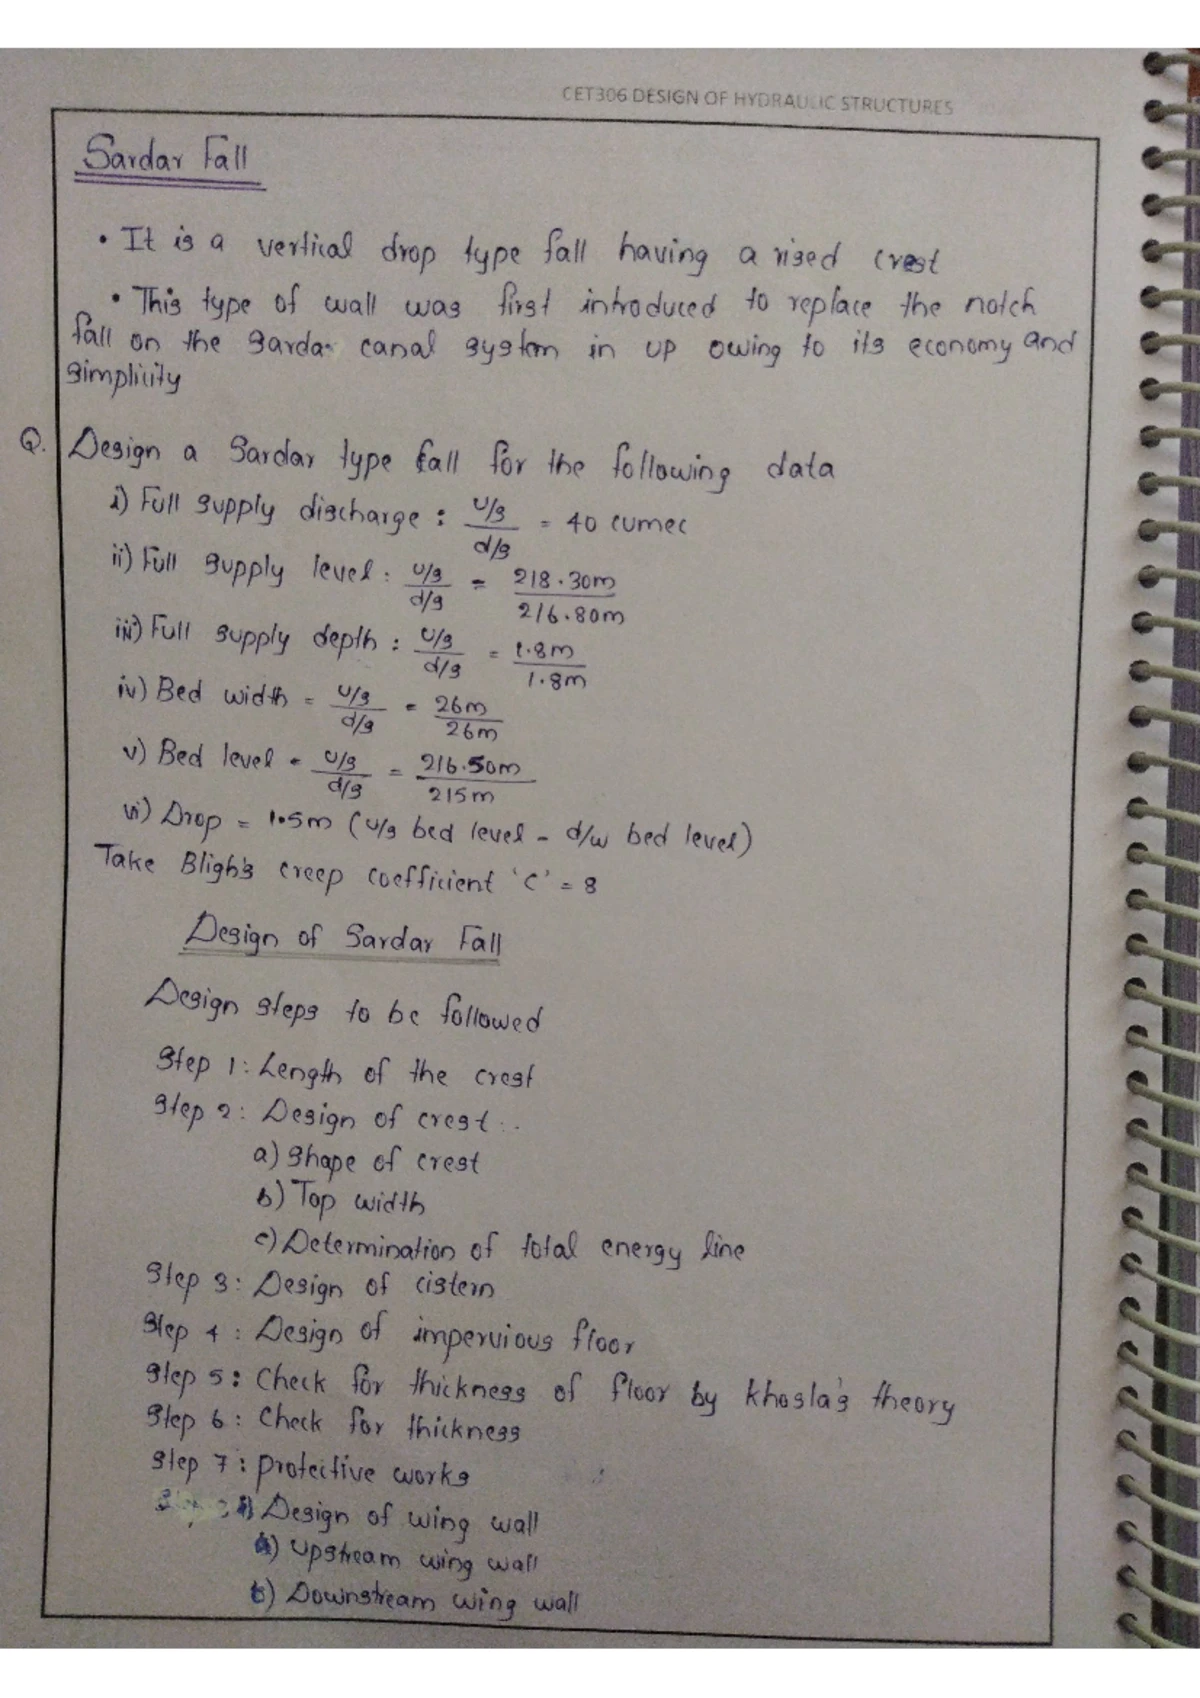 CET306 DESIGN OF HYDRAULIC STRUCTURES
Sardar Fall
• It is a vertical drop type fall having a rised crest
• This type of wall was first introduced to replace the notch
fall on the Sardar canal system in UP owing to its economy and
simplicity
Q. Design a Sardar type fall for the following data
i) Full supply discharge : u/s / d/s = 40 cumec
ii) Full supply level : u/s / d/s = 218.30m / 216.80m
iii) Full supply depth : u/s / d/s = 1.8m / 1.8m
iv) Bed width = u/s / d/s = 26m / 26m
v) Bed level = u/s / d/s = 216.50m / 215m
vi) Drop = 1.5m (u/s bed level - d/w bed level)
Take Bligh's creep coefficient 'C' = 8
Design of Sardar Fall
Design steps to be followed
Step 1: Length of the crest
Step 2: Design of crest
a) Shape of crest
b) Top width
c) Determination of total energy line
Step 3: Design of cistern
Step 4: Design of impervious floor
Step 5: Check for thickness of floor by khosla's theory
Step 6: Check for thickness
Step 7: protective works
i) Design of wing wall
a) upstream wing wall
b) Downstream wing wall